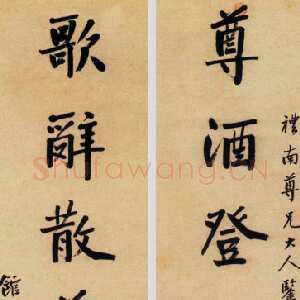 禮南尊兄大人鑒
尊酒登
歌辭散
館
Shufawang.CN